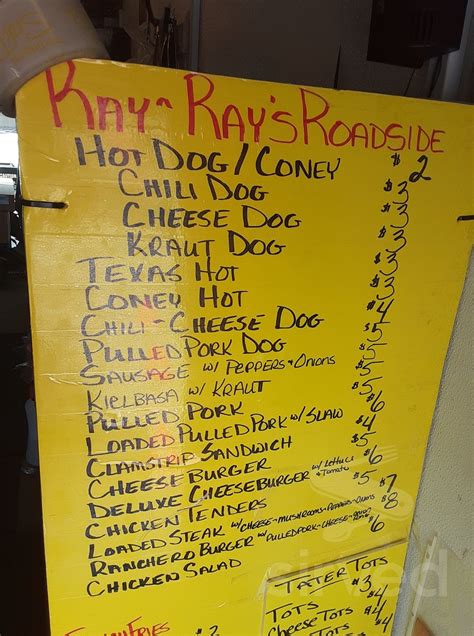 Ray-Ray's Roadside
Hot Dog/Coney $2
Chili Dog $3
Cheese Dog $3
Kraut Dog $3
Texas Hot $3
Coney Hot $3
Chili-Cheese Dog $4
Pulled Pork Dog $5
Sausage w/ Peppers+Onions $5
Kielbasa w/ Kraut $5
Pulled Pork $5
Loaded Pulled Pork w/ Slaw $6
Clamstrip Sandwich $4
Cheeseburger $5
Deluxe Cheeseburger w/ Lettuce + Tomato $6
Chicken Tenders $5
Loaded Steak w/ Cheese-Mushrooms-Peppers-Onions $7
Ranchero Burger w/ Pulled Pork-Cheese $8
Chicken Salad $6
Tater Tots
Tots $3
Cheese Tots $4
Tots $4
Fries
sirved